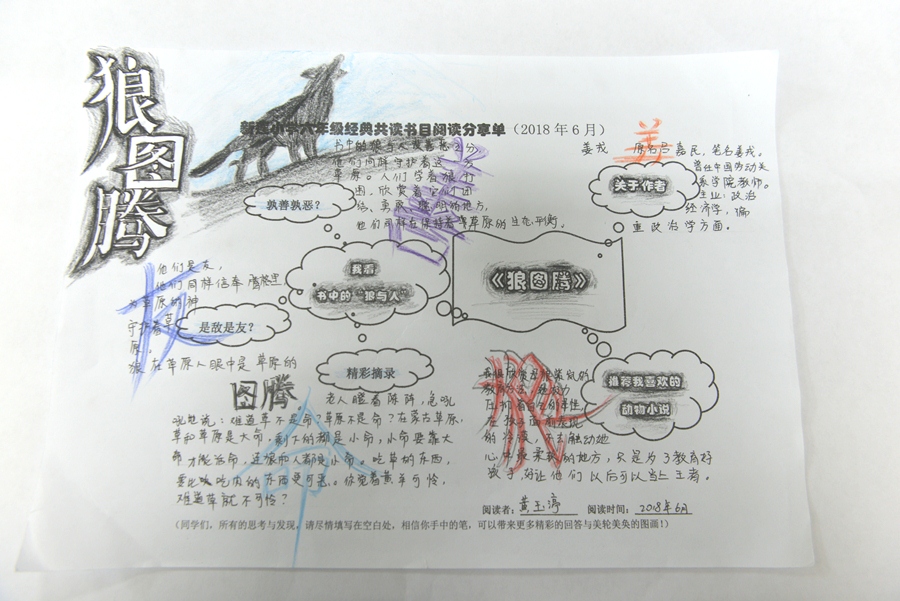 狼图腾
六年级经典共读书目阅读分享单（2018年6月）
书中的狼与人
他们同样守护着这一
草原。人们学着狼打
围，欣赏着它们团
结、勇敢、的地方，
他们同样在保持着草原的生态平衡。
孰善孰恶？
姜戎 原名吕嘉民，笔名姜戎。
曾任中国劳动关
系学院教师。
专业：政治
经济学，偏
重政治学方面。
姜
关于作者
善
他们是友，
他们同样信奉腾格里
为草原的神
守护着草
原。
狼在草原人眼中是草原的
图腾
友
是敌是友？
我看
书中的“狼与人”
《狼图腾》
精彩摘录
老人瞪着陈阵，急吼
吼地说：难道草不是命？草原不是命？在蒙古草原，
草和草原是大命，剩下的都是小命，小命要靠大
命才能活命，连狼和人都是小命。吃草的东西，
要比吃肉的东西更可恶。你觉着黄羊可怜，
难道草就不可怜？
命
推荐我喜欢的
动物小说
狼
的冷漠，不去触动地
心中最柔软的地方，只是为了教育好
孩子，好让他们以后可以当上王者。
阅读者：黄玉渟 阅读时间：2018年6月
（同学们，所有的思考与发现，请尽情填写在空白处，相信你手中的笔，可以带来更多精彩的回答与美轮美奂的图画！）